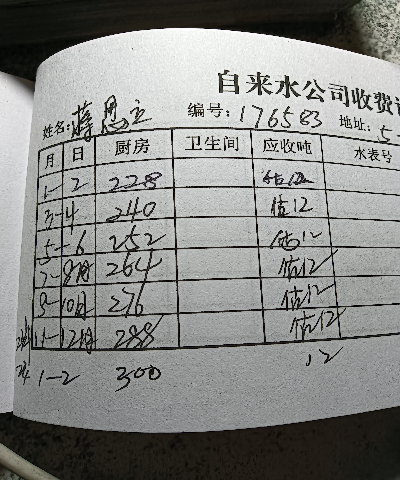 自来水公司收费
姓名: 蒋思立 编号: 176583 地址: 5-
月 日 厨房 卫生间 应收吨 水表号
1-2 228 估12
3-4 240 估12
5-6 252 估12
7-8月 264 估12
9-10月 276 估12
11-12月 288 估12
1-2 300 12